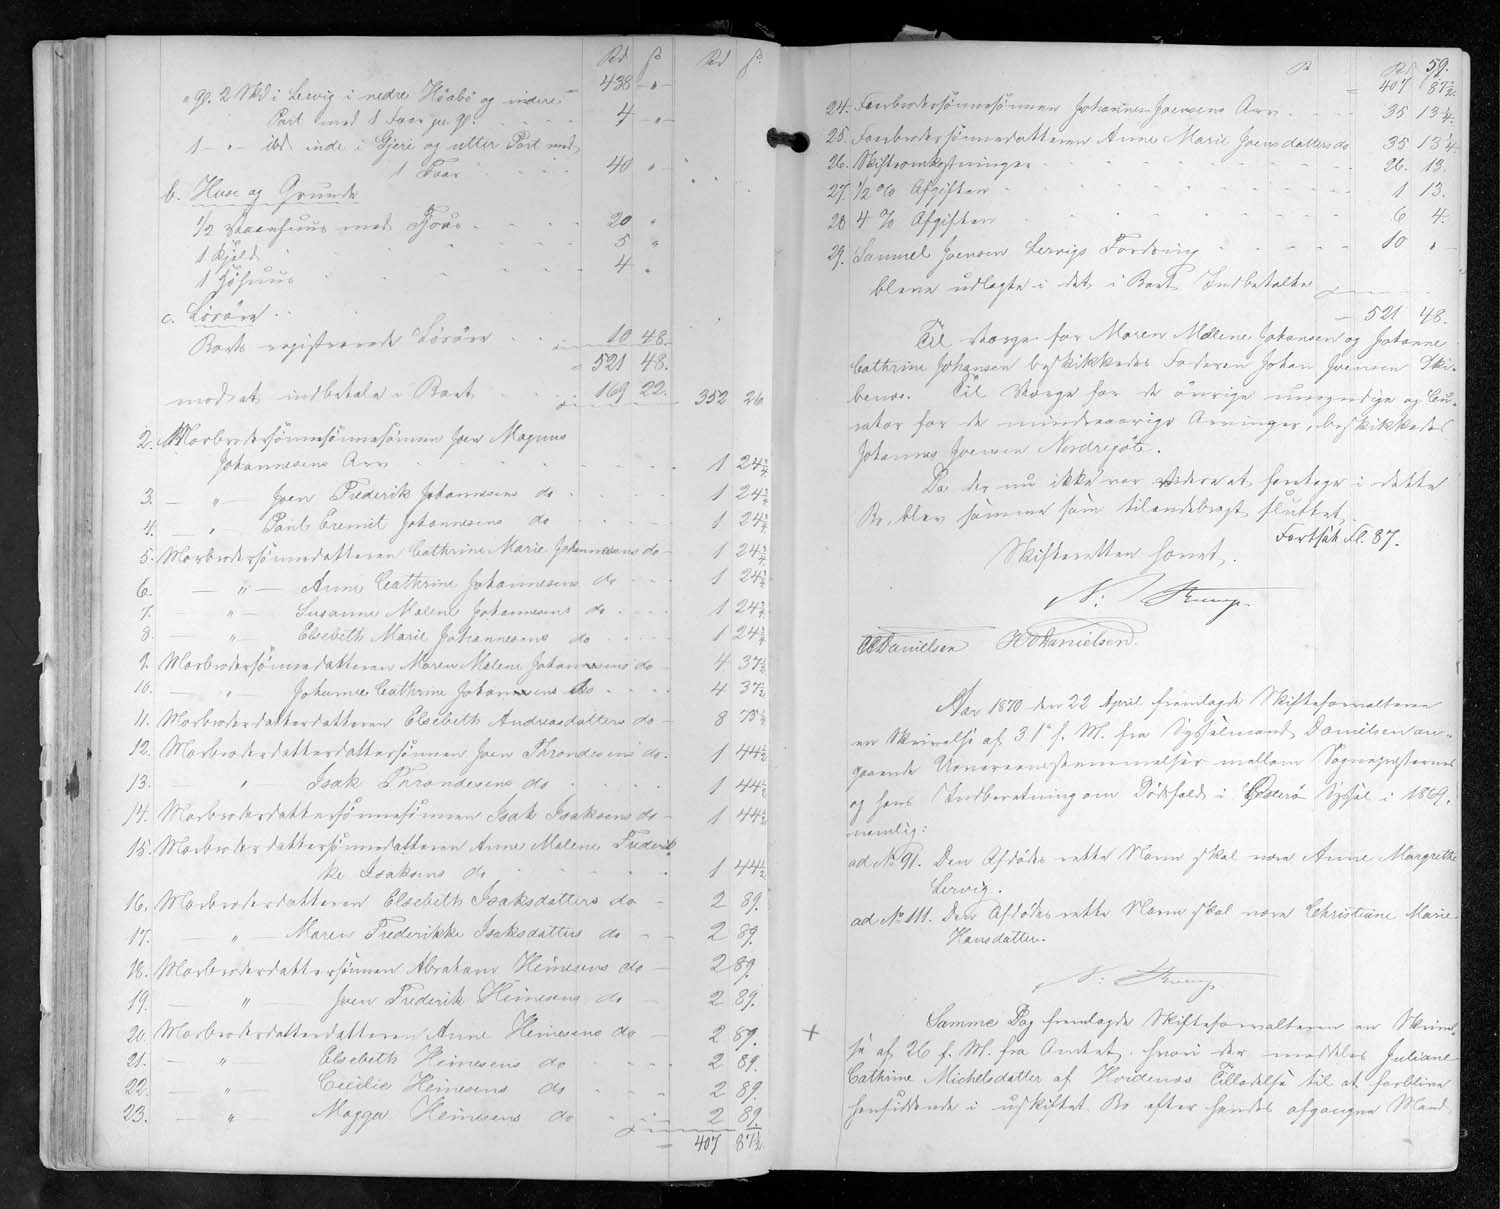 Rd ß Rd ß
" gl. 2 Skd i Lervig i nedre Höabö og indere — 438 - " -
Part med 1 Faar pr. gl. 4 - " -
1 - " - ibd inde i Gjere og utter Part med
1 Faar 40 "
b. Huse og Grunde
1/2 Roeenhuus med Fjoos 20 "
1 Kjæld 5 "
1 Höhuus 4 "
c. Lösöre
Boets registrerede Lösöre 10 48.
521 48.
mod at indbetale i Boet 169 22. 352 26
2. Morbrodersönnesönnesönnen Joen Magnus
Johannesens Arv 1 24 3/4
3. — " — Joen Frederik Johannesens do 1 24 3/4
4. — " — Poul Eremit Johannesens do 1 24 3/4
5. Morbrodersönnedatteren Cathrine Marie Johannesens do — 1 24 3/4
6. — " — Anne Cathrine Johannesens do 1 24 3/4
7. — " — Susanne Malene Johannesens do 1 24 3/4
8. — " — Elsebeth Marie Johannesens do 1 24 3/4
9. Morbrodersönnedatteren Maren Malene Johansens do — 4 37 1/2
10. — " — Johanne Cathrine Johansens do 4 37 1/2
11. Morbroderdatterdatteren Elsebeth Andreasdatters do — 8 75 1/2
12. Morbroderdatterdattersönnen Joen Throndesens do. 1 44 1/2
13. " Isak Throndesens do 1 44 1/2
14. Morbroderdattersönnesönnen Isak Isaksens do — 1 44 1/2
15. Morbroderdattersönnedatteren Anne Malene Frederik
ke Isaksens do 1 44 1/2
16. Morbroderdatteren Elsebeth Isaksdatters do — 2 89.
17. — " — Maren Frederikke Isaksdatters do — 2 89.
18. Morbroderdattersönnen Abraham Heinesens do — 2 89.
19. — " — Joen Frederik Heinesens do — 2 89.
20. Morbroderdatterdatteren Anne Heinesens do — 2 89.
21. — " Elsebeth Heinesens do 2 89.
22. — " — Cicilie Heinesens do 2 89.
23. — " — Magga Heinesens do 2 89
407 87 1/2
59.
Rd ß
407 87 1/2
24. Farbrodersönnesönnen Johannes Joensens Arv 35 13 1/4
25. Farbrodersönnedatteren Anne Marie Joensdatters do 35 13 1/4
26. Skifteomkostninger 26. 13.
27. 1/2 % Afgiften 1 13.
28 4 % Afgiften 6 4.
29. Samuel Joensen Lervigs Fordring 10 "
bleve udlagte i det i Boet Indbetalte
521 48.
Til Værge for Maren Malene Johansen og Johanne
Cathrine Johansen beskikkedes Faderen Johan Joensen Ski-
benæs. Til Værge for de övrige umyndige og Cu-
rator for de mindreaarige Arvinger, beskikkedes
Johannes Joensen Nordregöte.
Da der nu ikke var videre at foretage i dette
Bo, blev samme som tilendebragt sluttet.
Fortsat Fl. 87.
Skifteretten hævet.
Danielsen H Danielsen.
Aar 1870 den 22 April fremlagde Skifteforvalteren
en Skrivelse af 31te f. M. fra Sysselmand Danielsen an-
gaaende Uoverensstemmelser mellem Sognepræsternes
og hans Indberetning om Dödsfald i Österö Syssel i 1869,
nemlig:
ad No 91. Den Afdödes rette Navn skal være Anne Margrethe
Lervig.
ad No 111. Den Afdödes rette Navn skal være Christiane Marie
Hansdatter.
+
Samme Dag fremlagde Skifteforvalteren en Skrivel-
se af 26 f. M. fra Amtet, hvori der meddeles Juliane
Cathrine Michelsdatter af Hvidenæs Tilladelse til at forblive
hensiddende i uskiftet Bo efter hendes afgangne Mand